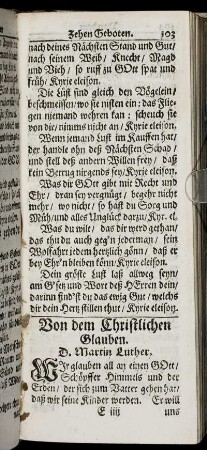 Zehen Geboten. 303
nach deines Nächsten Stand und Gut/
nach seinem Weib/ Knecht/ Magd
und Vieh/ so ruff zu GOtt spat und
früh/ Kyrie eleison.
Die Lüst sind gleich den Vögelein/
beschmeissen/ wo sie nisten ein: das Flie-
gen niemand wehren kan: scheuch sie
von dir/ nimms nicht an/ Kyrie eleison.
Wenn jemand Lust im Kauffen hat/
der handle ohn deß Nächsten Schad/
und stell deß andern Willen frey/ daß
kein Betrug nirgends sey/ Kyrie eleison.
Was dir GOtt gibt mit Recht und
Ehr/ daran sey vergnügt/ begehr nicht
mehr/ wo nicht/ so hast du Sorg und
Müh/ und alles Unglück darzu/ Kyr. el.
Was du wilt/ das dir werd gethan/
das thu du auch geg'n jederman/ sein
Wolfahrt jedem hertzlich gönn/ daß er
bey Ehr'n bleiben könn/ Kyrie eleison.
Dein gröste Lust laß allweg seyn/
am G'setz und Wort deß HErren dein/
darinn find'st du das ewig Gut/ welchs
dir dein Hertz stillen thut/ Kyrie eleison.
Von dem Christlichen
Glauben.
D. Martin Luther.
WIr glauben all an einen GOtt/
Schöpffer Himmels und der
Erden/ der sich zum Vatter geben hat/
daß wir seine Kinder werden. Er will
E iiij uns